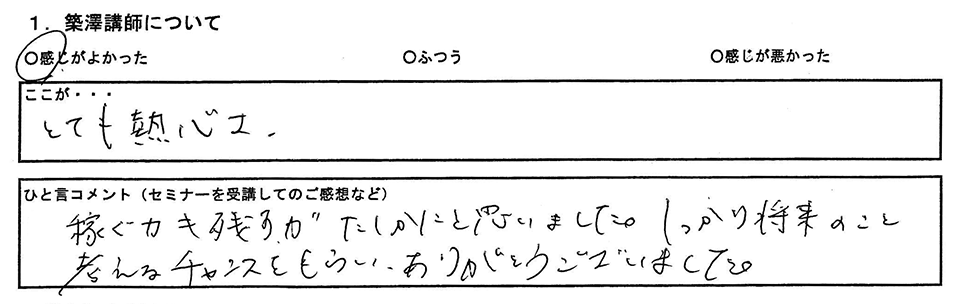 1．築澤講師について
○感じがよかった ○ふつう ○感じが悪かった
ここが・・・
とても熱心さ.
ひと言コメント（セミナーを受講してのご感想など）
稼ぐ力も残す力がたしかにと思いました。しっかり将来のこと
考えるチャンスをもらい、ありがとうございました。